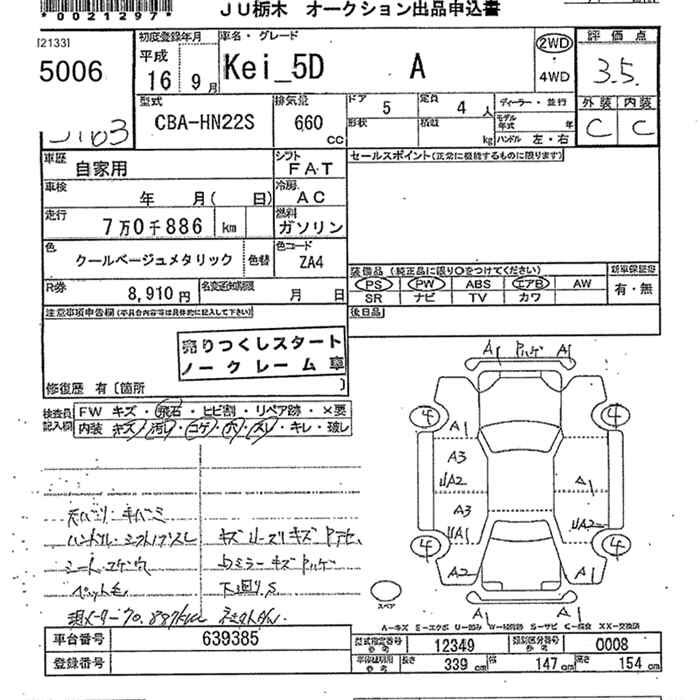 *0021297*
JU栃木 オークション出品申込書
[2133]
5006
初度登録年月
平成
16 9月
車名・グレード
Kei_5D A
2WD
4WD
評価点
3.5
外装 内装
C C
型式
CBA-HN22S
排気量
660
cc
ドア 5
定員 4 人
形状
積載 kg
ディーラー・並行
モデル年式 年
ハンドル 左・右
車歴
自家用
シフト
FAT
セールスポイント(正常に機能するものに限ります)
車検
年 月( 日)
冷房
AC
走行
7万0千886 km
燃料
ガソリン
色
クールベージュメタリック
色替
色コード
ZA4
装備品(純正品に限り○をつけてください)
PS PW ABS エアB AW
SR ナビ TV カワ
新車保証書
有・無
R券
8,910円
名変通知期限
月 日
後日品
注意事項申告欄(不具合内容等は具体的に記入して下さい)
売りつくしスタート
ノークレーム車
修復歴 有〔箇所 〕
検査員
記入欄
FW キズ・飛石・ヒビ割・リペア跡・×要
内装 キズ・汚レ・コゲ・穴・スレ・キレ・破レ
A1 ハゲ A1
4 4
A1
A3
A1
A3
A2
A1
4 4
スペア
現メーター70,887km
下廻りS
A=キズ E=エクボ U=凹み W=補修跡 S=サビ C=腐食 XX=交換済
車台番号 639385
登録番号
型式指定番号 12349
類別区分番号 0008
車体証明用
長さ 339 cm 幅 147 cm 高さ 154 cm